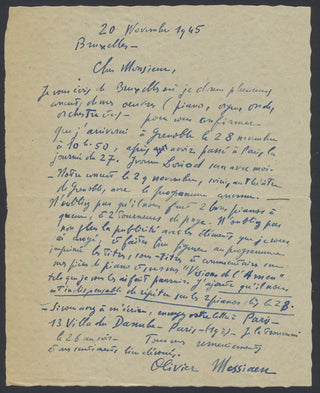 20 Novembre 1945
Bruxelles –
Cher Monsieur,
Je vous écris de Bruxelles où je donne plusieurs
concerts de mes œuvres (piano, orgue, ondes,
orchestre etc) – pour vous confirmer
que j'arriverai à Grenoble le 28 novembre
à 10 h. 50, après avoir passé à Paris la
journée du 27. Yvonne Loriod sera avec moi –
– Notre concert le 29 novembre, soirée, au théâtre
de Grenoble, avec le programme convenu. –
N'oubliez pas qu'il nous faut 2 bons pianos à
queue, et 2 tourneurs de page. N'oubliez pas
non plus la publicité avec les éléments que je vous
ai envoyé, et faites bien figurer au programme
imprimé les titres, sous-titres et commentaires sur
mes pièces de piano et sur mes "Visions de l'Amen"
tels que je vous les ai fait parvenir. J'ajoute qu'il nous
est indispensable de répéter sur les 2 pianos dès le 28.
– Si vous avez à m'écrire, envoyez votre lettre à Paris –
13 Villa du Danube – Paris – (19e) – Je la trouverai
le 26 au soir – Tous mes remerciements
et mes sentiments bien dévoués.
Olivier Messiaen